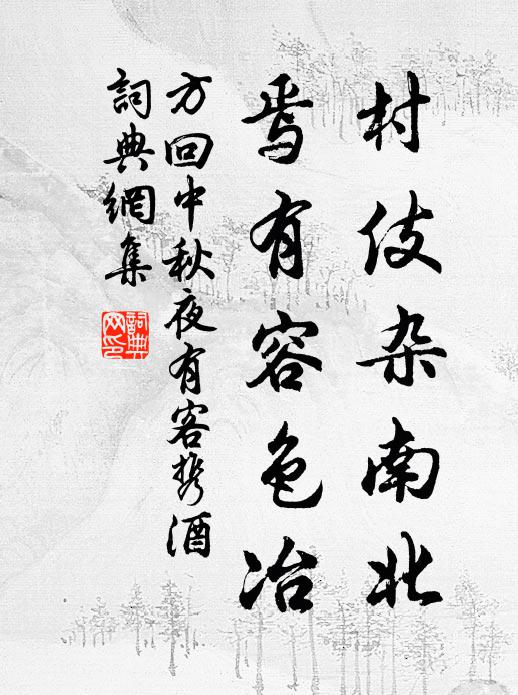 村伎杂南北
焉有容色冶
方回中秋夜有客携酒
詞典網集
詞典網印